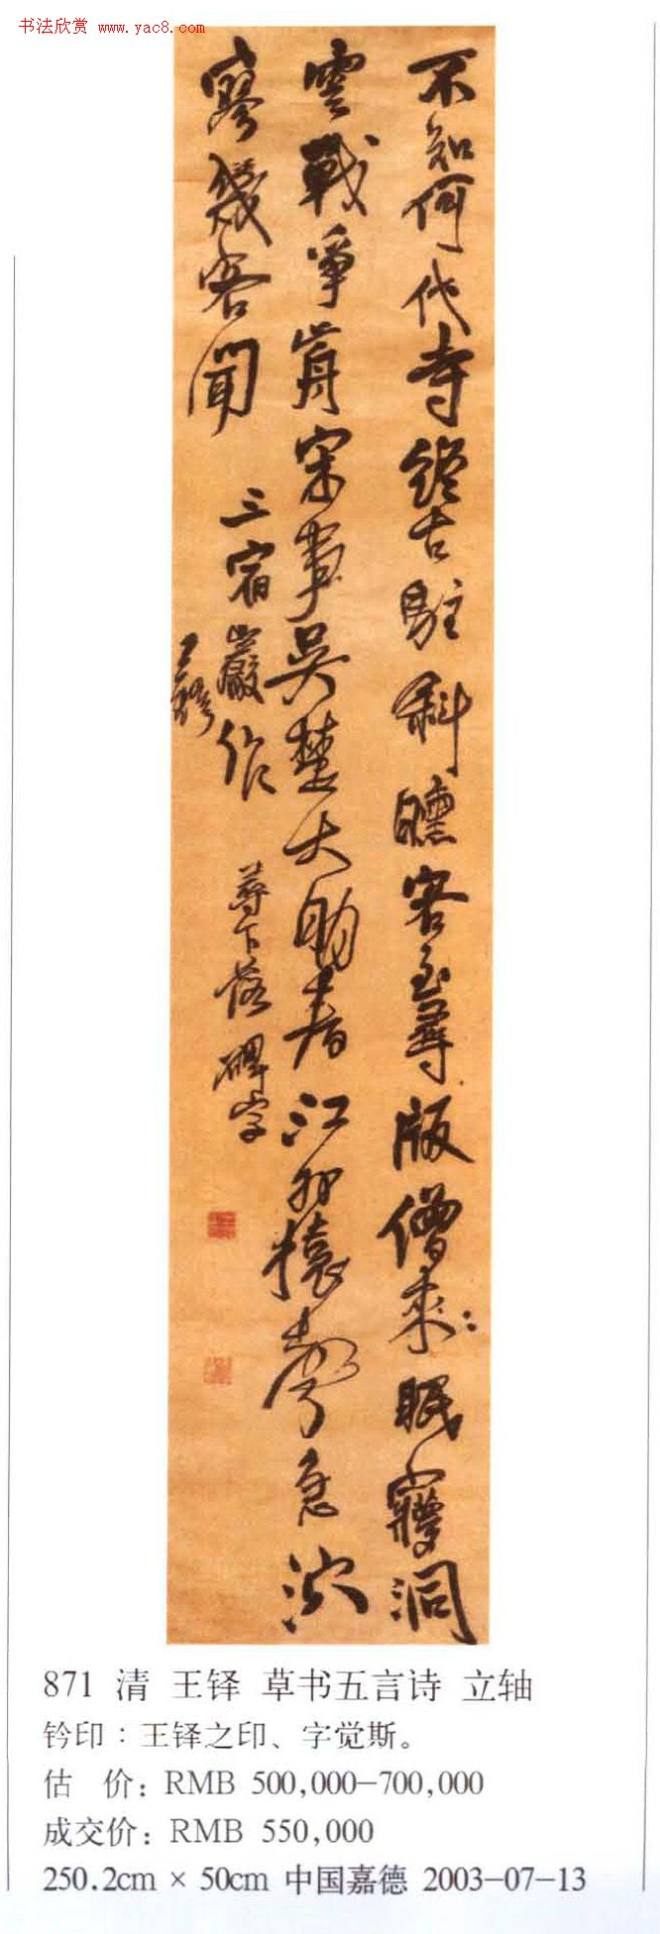 书法欣赏 www.yac8.com
不知何代寺終古駐斜曛客至尋版僧來眠洞
雲戰爭前宋事吳楚大江外猿聲急深
幾客聞
三宿巖作 尋下落碑字
王鐸
871 清 王铎 草书五言诗 立轴
钤印：王铎之印、字觉斯。
估 价: RMB 500,000-700,000
成交价: RMB 550,000
250.2cm × 50cm 中国嘉德 2003-07-13